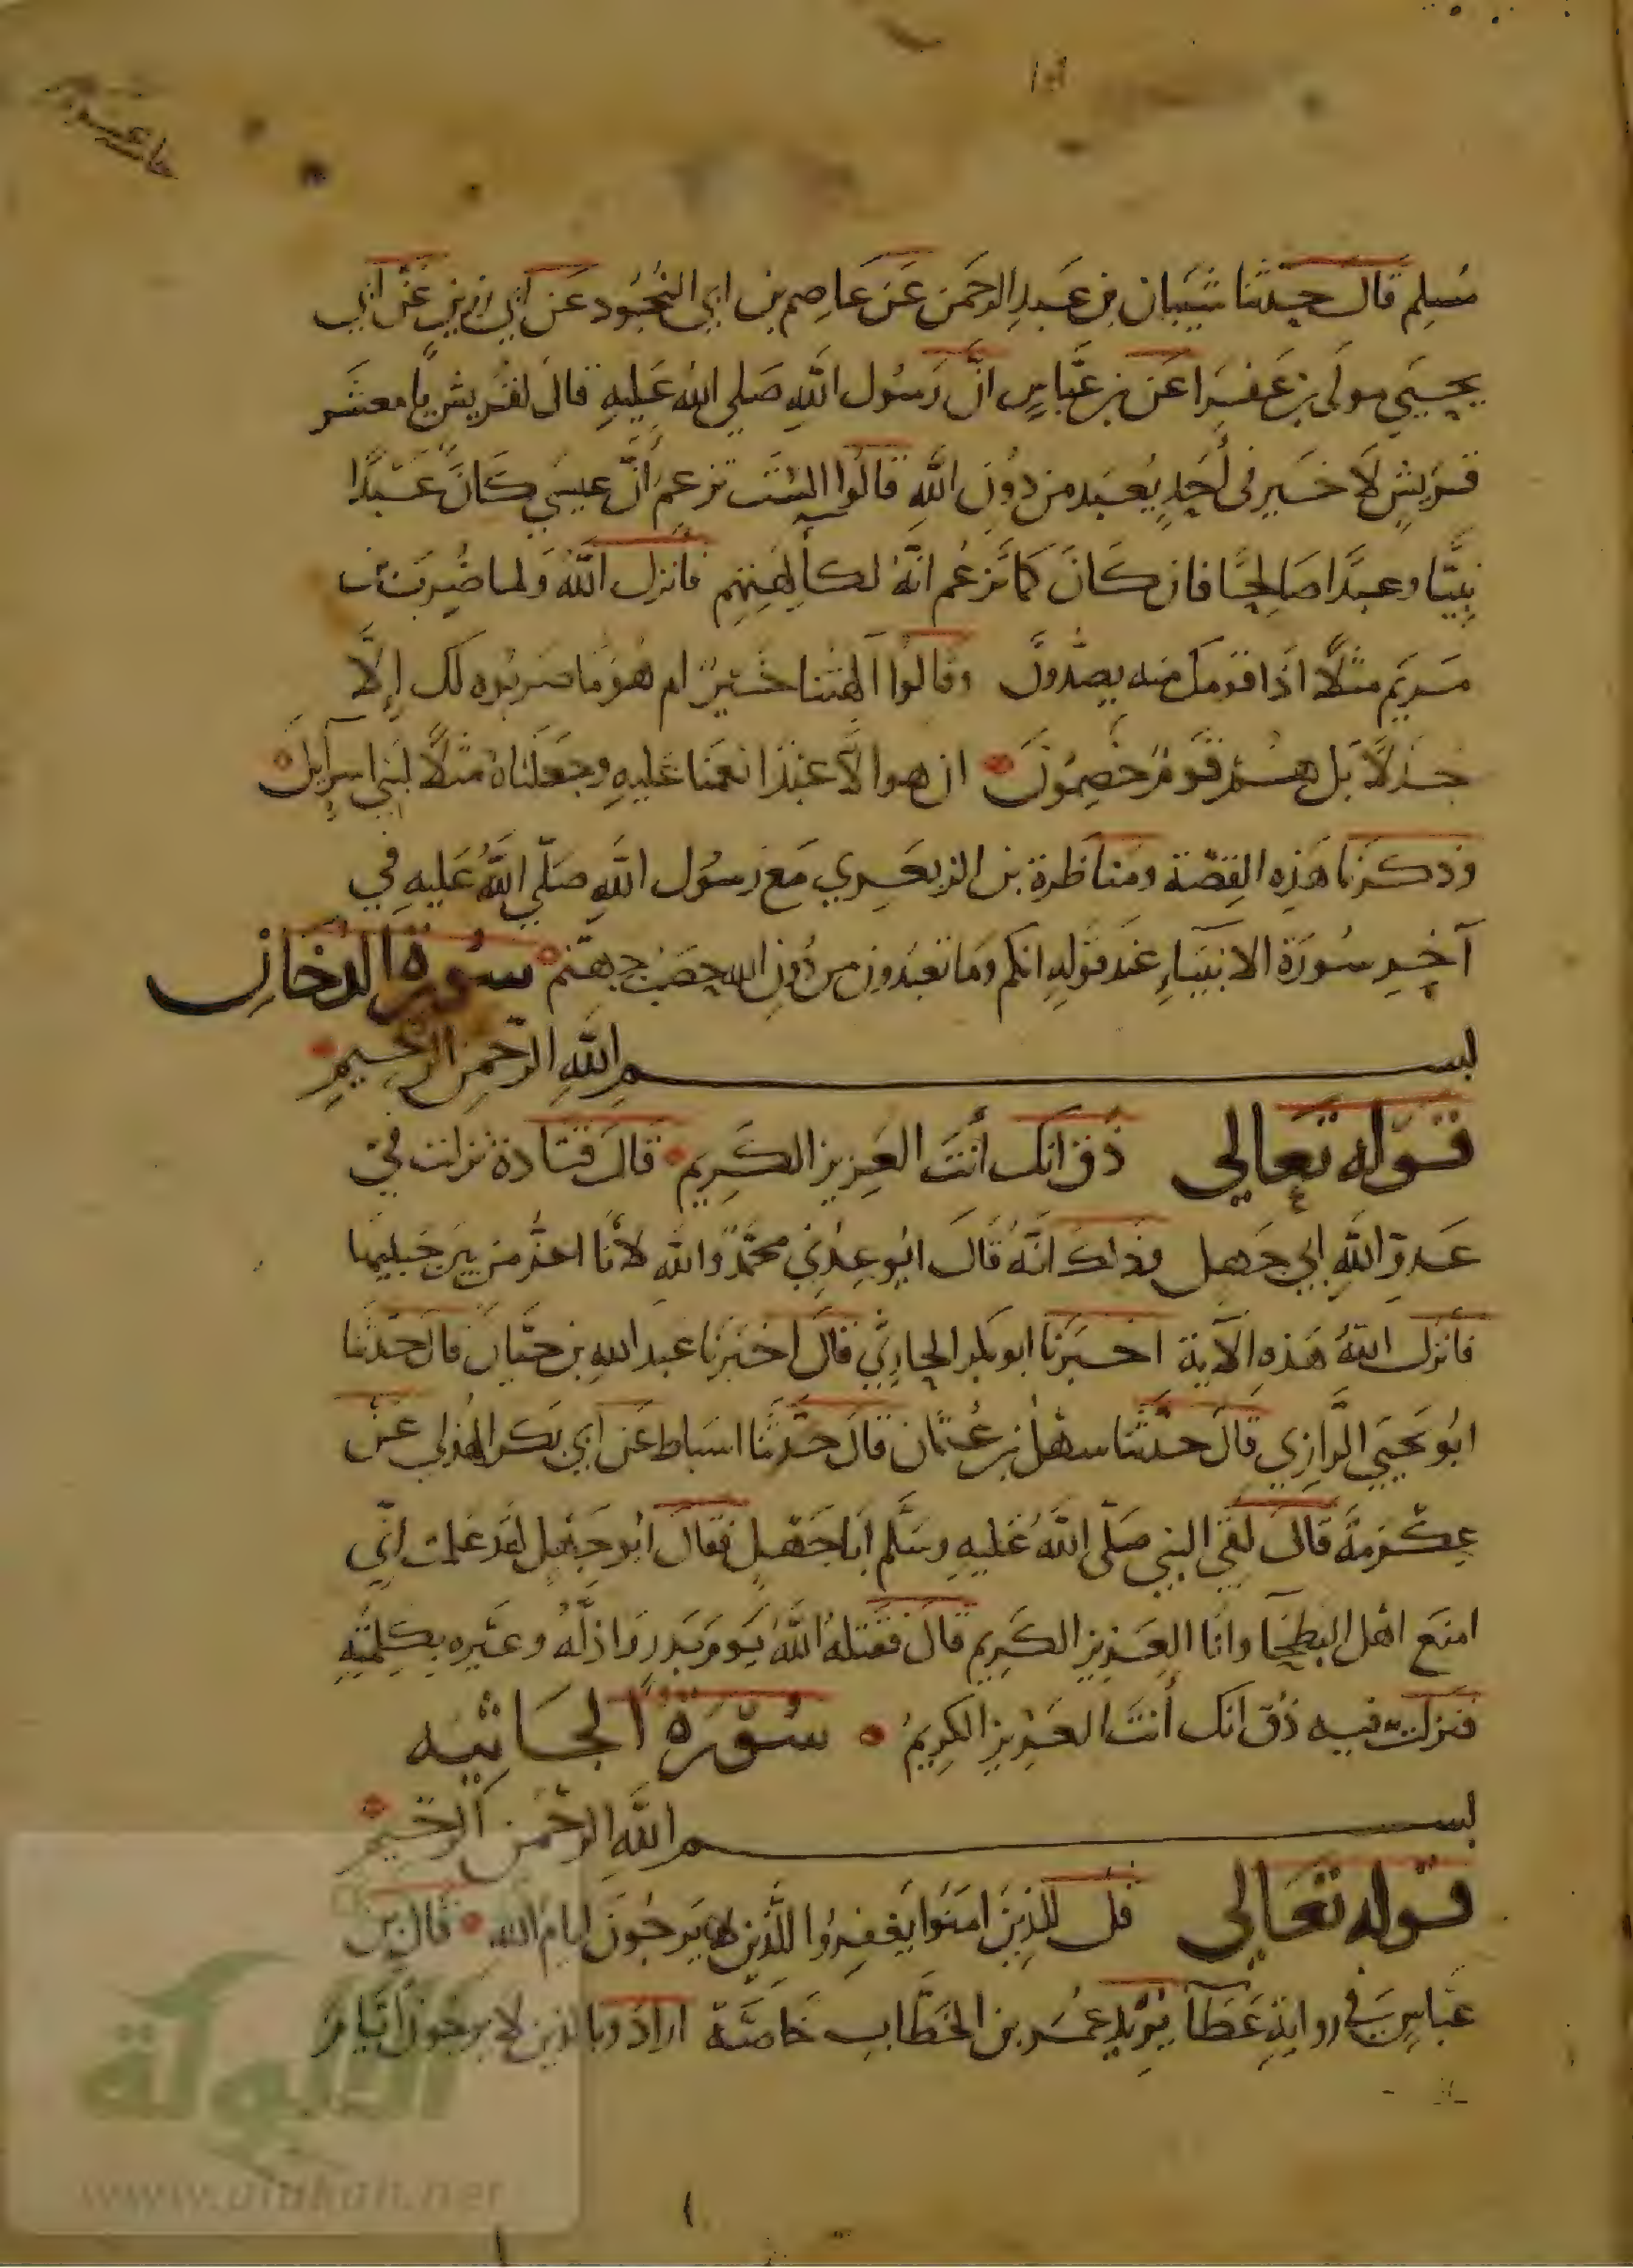 مُسلِم قال حدثنا شَيبان بن عَبدِ الرحمن عَن عَاصِم بن ابي النجُود عَن ابي رزينٍ عَنْ ابي
يحيَي مولَى بن عَفرَا عَن بن عبَّاسٍ انّ رَسُول اللهِ صَلي الله عَليهِ قال لقُريش يا معشَر
قرَيشٍ لا خير في أَحدٍ يُعبَد من دُونِ اللهِ قالُوا الست تزعم أنّ عيسَي كانَ عَبدًا
نبيًّا وعبدًا صَالحًا فان كانَ كما تزعُم انّهُ لكآلهتهم فانزل اللهُ ولما ضُرِبَ بن
مَريَم مثلًا اذا قومك منه يصدّون وقالوا آلهتنا خَيرٌ ام هُو ما ضربُوه لك إلّا
جدلًا بَل هُم قَومٌ خصِمُونَ ان هوا لا عبدٌ انعمنا عَليهِ وجعَلناهُ مثلًا لبني اسرآيل
وذكرنا هَذِه القصّة ومنَاظرة بن الزبعري مَع رسُول اللهِ صَلّي اللهُ عَليهِ في
آخِرِ سُورَة الانبيَاءِ عند قولهِ انكم ومَا تعبدون من دُون الله حصَب جهنم سُورة الدخان
بسم اللهِ الرّحمنِ الرحيمِ
قوله تعالي ذُق انك أنتَ العَزيز الكَرِيم قالَ قتادة نزلت في
عَدوّ اللهِ ابي جَهل وذلك انّهُ قالَ ايُوعِدُني محمّدٌ واللهِ لأنا اعزُّ من بين جَبليها
فانزل اللهُ هَذِهِ الآية اخبرنا ابو بكر الحارثي قال اخبَرنا عَبد اللهِ بن حيّان قال حدّثنا
ابُو يَحيَي الرَّازِي قالَ حدّثنا سهْلُ بن عُثمان قالَ حدّثنا اسبَاط عَن ابي بَكر الهُذلي عَن
عِكْرمةَ قالَ لقيَ النبي صَلّي اللهُ عَليهِ وسَلّم ابا جَهلٍ فقالَ ابُو جَهلٍ لقد عَلمت انّي
امنَع اهْل البَطحا وانا العَزيز الكَرِيم قالَ فقتلهُ اللهُ يَوم بَدر واذلّهُ وعيّره بكلِمتِهِ
فنزلت فيه ذُق انك أنتَ العَزيز الكرِيمُ سُورَة الجاثيه
بسم اللهِ الرحمن الرحيمِ
قوله تعَالي قل للذِينَ امنَوا يَغفِرُوا للّذِين لا يَرجُونَ ايام الله قال بن
عَبّاسٍ في روايةِ عَطآ يُرِيد عُمَر بن الخَطّابِ خَاصّة ارادَ وبالذين لا يرجُونَ ايّامَ
www.alukah.net
الألوكة